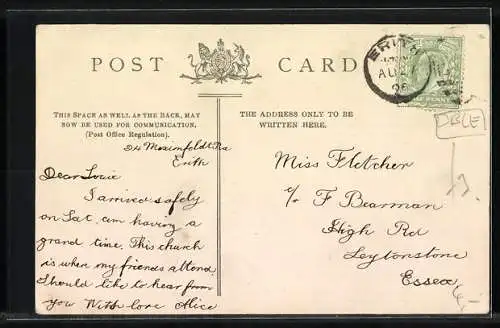 POST CARD
ERITH
AU
06
THIS SPACE AS WELL AS THE BACK, MAY
NOW BE USED FOR COMMUNICATION.
(Post Office Regulation).
THE ADDRESS ONLY TO BE
WRITTEN HERE.
24
Erith
Dear Louie
I arrived safely
on Sat. am having a
grand time. This church
is where my friends attend
Should like to hear from
you With love Alice
Miss Fletcher
c/o F Bearman
High Rd
Leytonstone
Essex